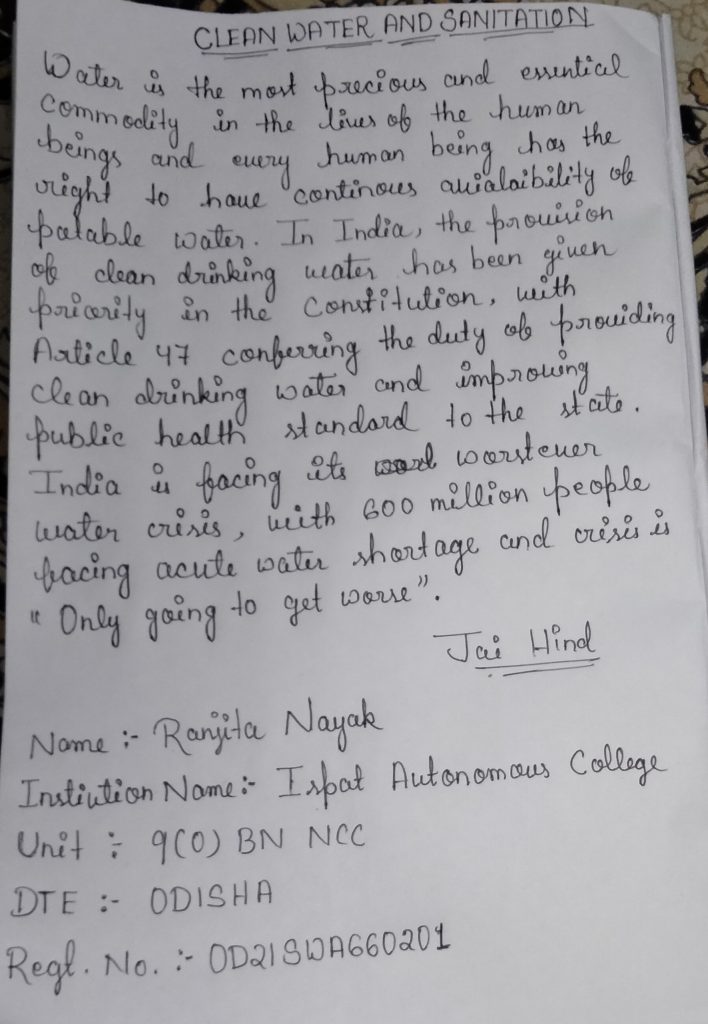 CLEAN WATER AND SANITATION
Water is the most precious and essential
commodity in the lives of the human
beings and every human being has the
right to have continous avialaibility of
patable water. In India, the provision
of clean drinking water has been given
priority in the Constitution, with
Article 47 conferring the duty of providing
clean drinking water and improving
public health standard to the state.
India is facing its worst ever
water crisis, with 600 million people
facing acute water shortage and crisis is
" Only going to get worse".
Jai Hind
Name :- Ranjita Nayak
Instiution Name :- Ispat Autonomous College
Unit :- 9(O) BN NCC
DTE :- ODISHA
Regl. No. :- OD21SWA660201